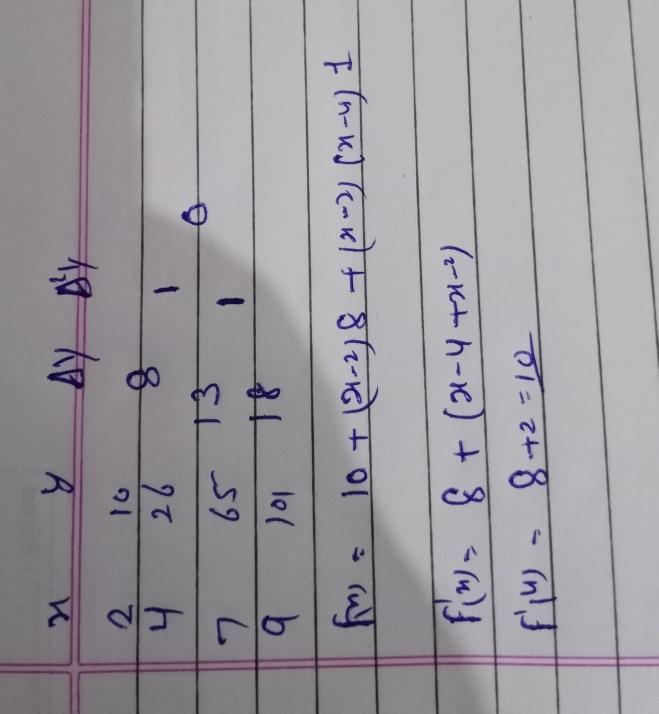 x y Δy Δ²y
2 10
8
4 26 1
13 0
7 65 1
18
9 101
f(x) = 10 + (x-2) 8 + (x-2) (x-4) 1
f'(x) = 8 + (x-4+x-2)
f'(4) = 8+2 = 10